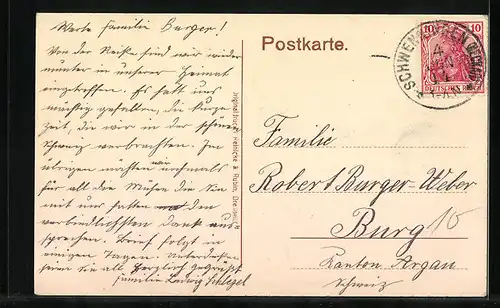 Werte Familie Burger!
Von der Reise sind wir wieder
munter in unserer Heimat
eingetroffen. Es hat uns
mächtig gefallen, die kurze
Zeit, die wir in der schönen
Schweiz verbrachten. Im
übrigen möchten wir nochmals
für all die Mühen die Sie
mit uns hatten den
verbindlichsten Dank aus
sprechen. Brief folgt in
einigen Tagen. Unterdessen
seien Sie alle herzlich gegrüßt
Familie Ludwig Schlegel
Postkarte.
SCHWENNINGEN
10 10
DEUTSCHES REICH
Familie
Robert Burger-Weber
Burg 10
Kanton Argau
Schweiz